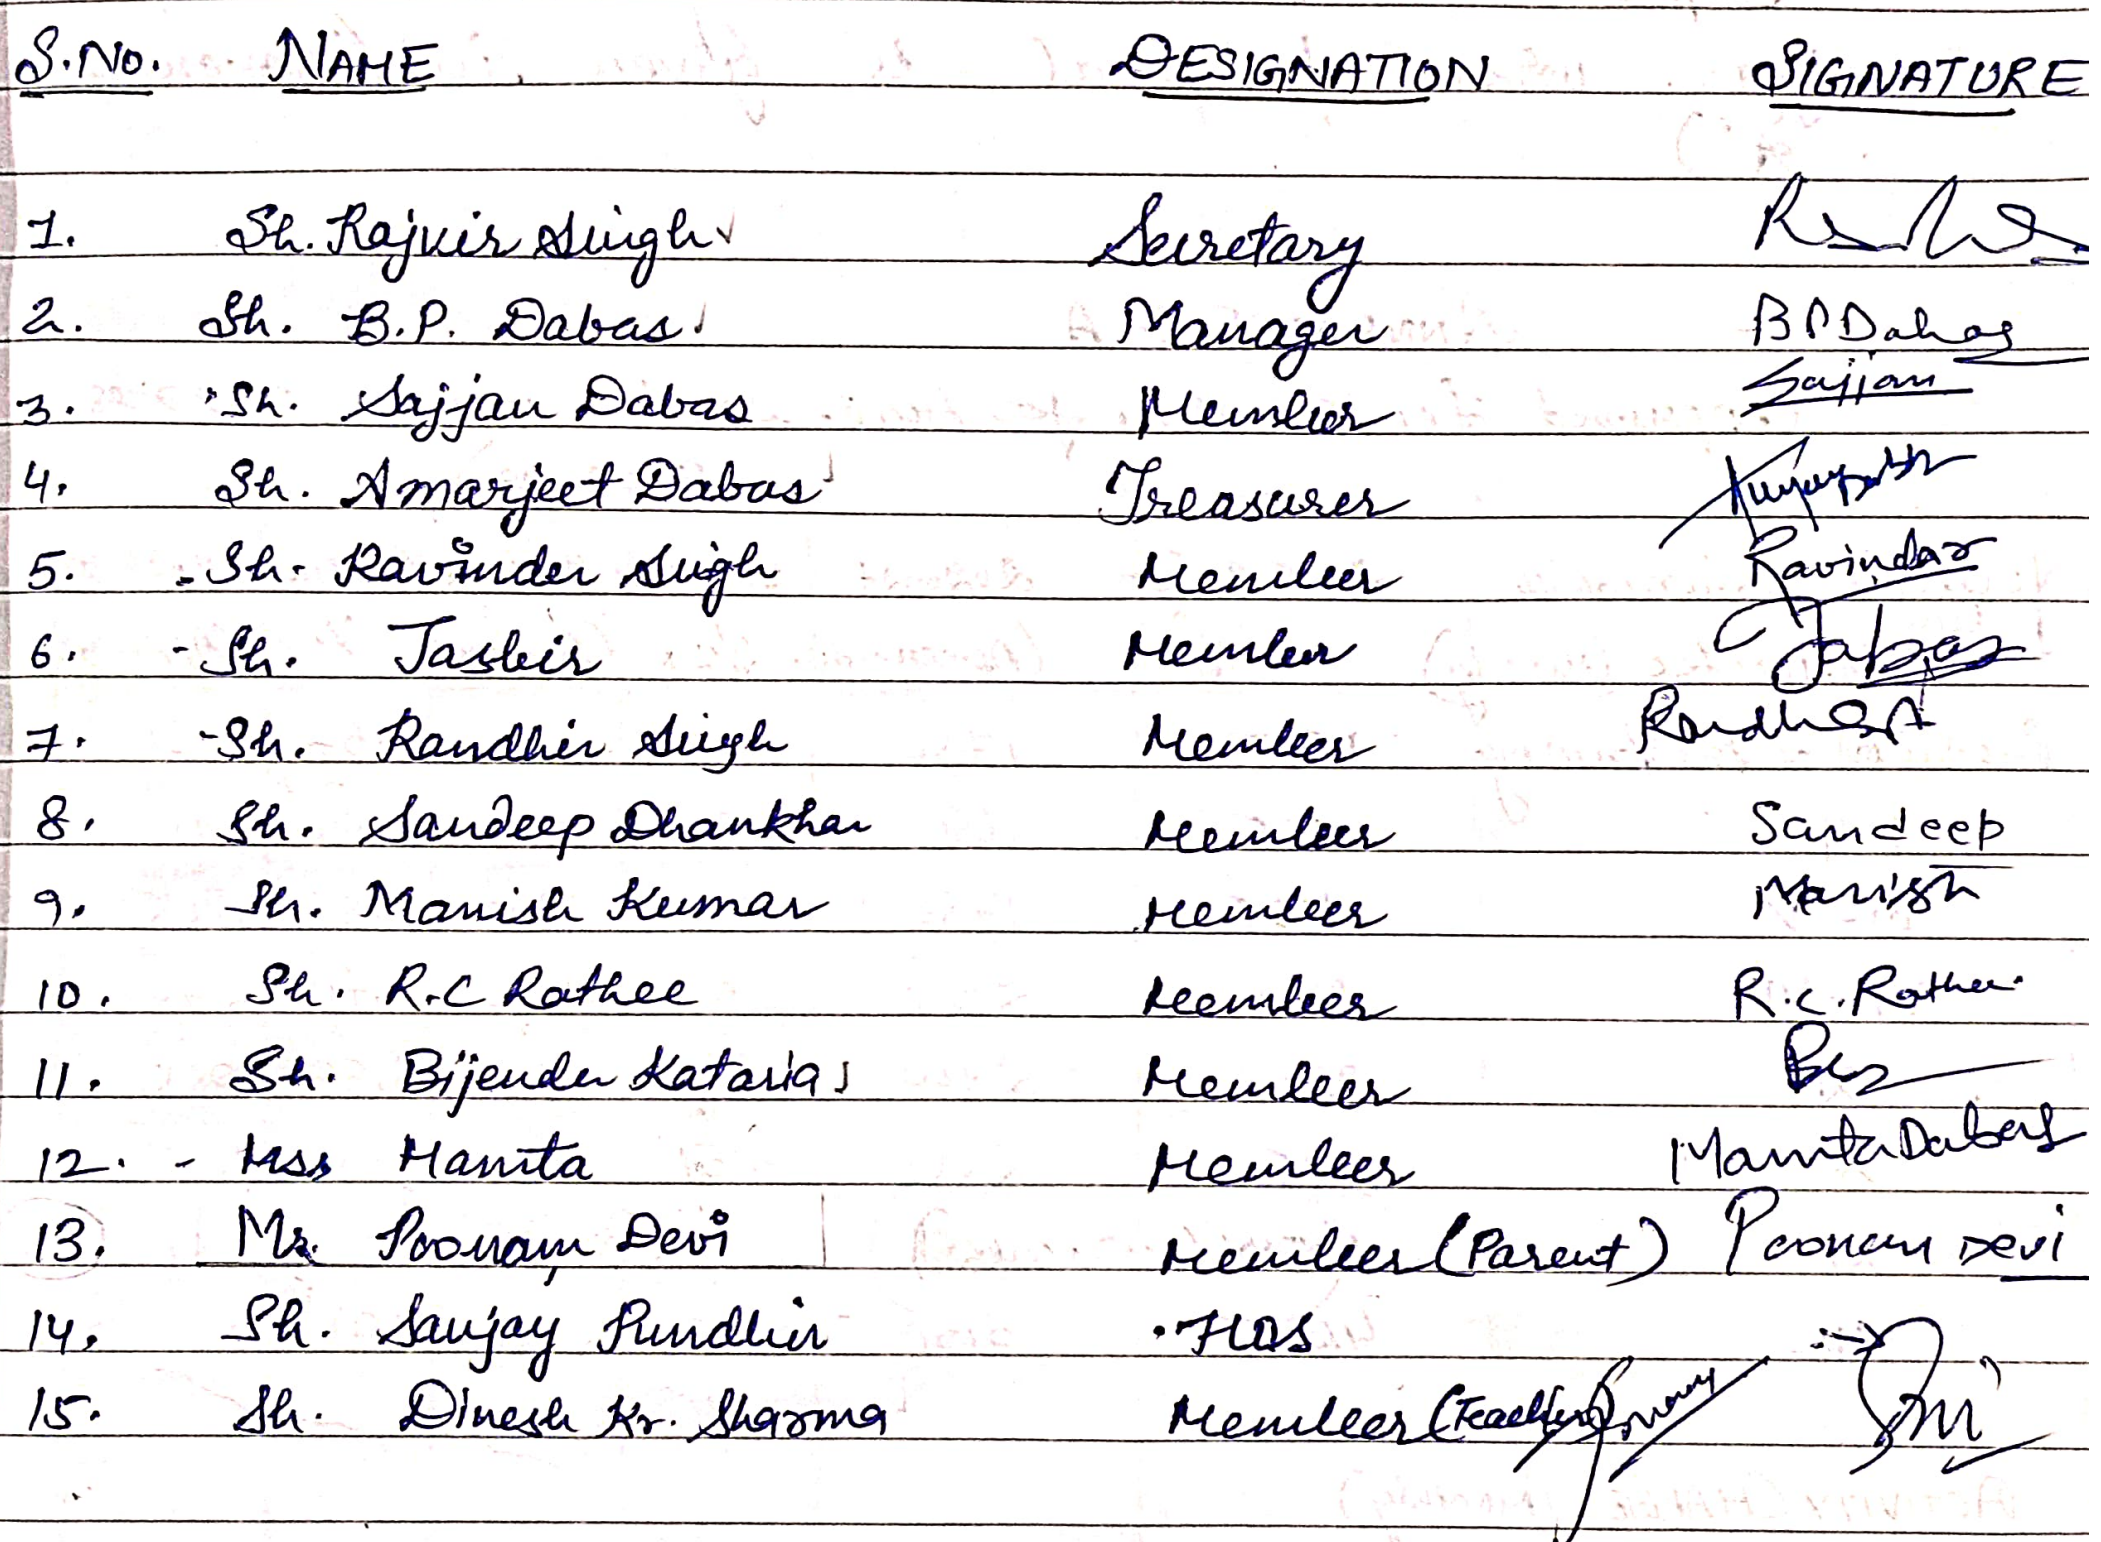 S.NO. NAME DESIGNATION SIGNATURE
1. Sh. Rajvir Singh Secretary
2. Sh. B.P. Dabas Manager B P Dabas
3. Sh. Sajjan Dabas Member Sajjan
4. Sh. Amarjeet Dabas Treasurer
5. Sh. Ravinder Singh Member Ravindar
6. Sh. Jasbir Member Jabas
7. Sh. Randhir Singh Member
8. Sh. Sandeep Dhankhar Member Sandeep
9. Sh. Manish Kumar Member Manish
10. Sh. R.C Rathee Member R.C. Rathee
11. Sh. Bijender Kataria Member
12. Mss Mamta Member Mamta Dabas
13. Mr. Poonam Devi Member (Parent) Poonam Devi
14. Sh. Sanjay Pundhir HOS
15. Sh. Dinesh Kr. Sharma Member (Teacher)